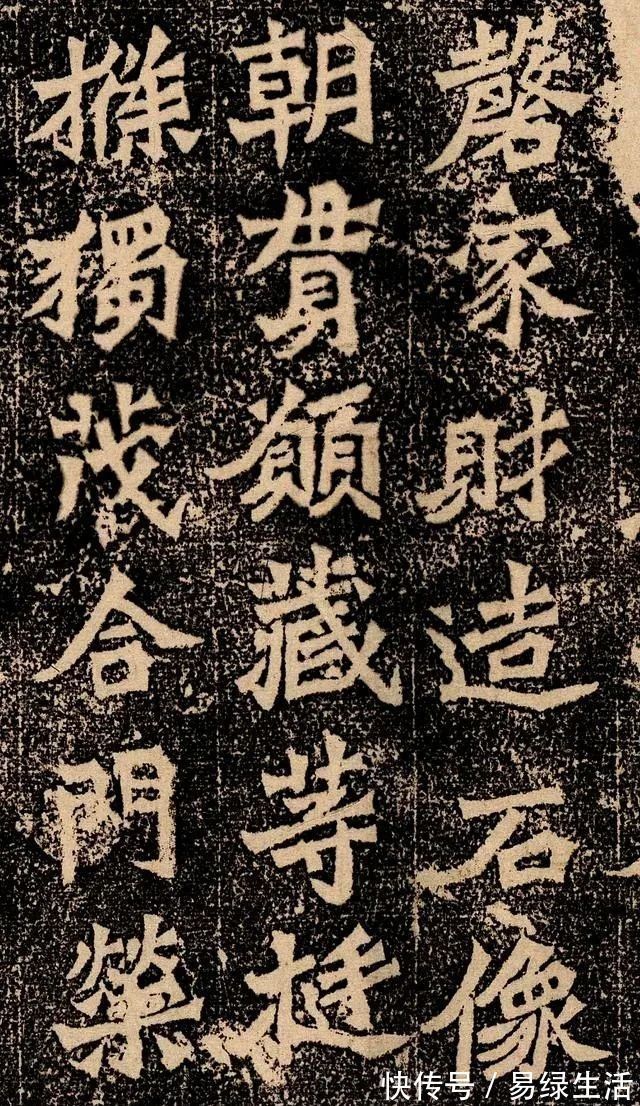 罄家財造石像
朝貫願藏等挺
條獨茂合門榮
快传号/易绿生活